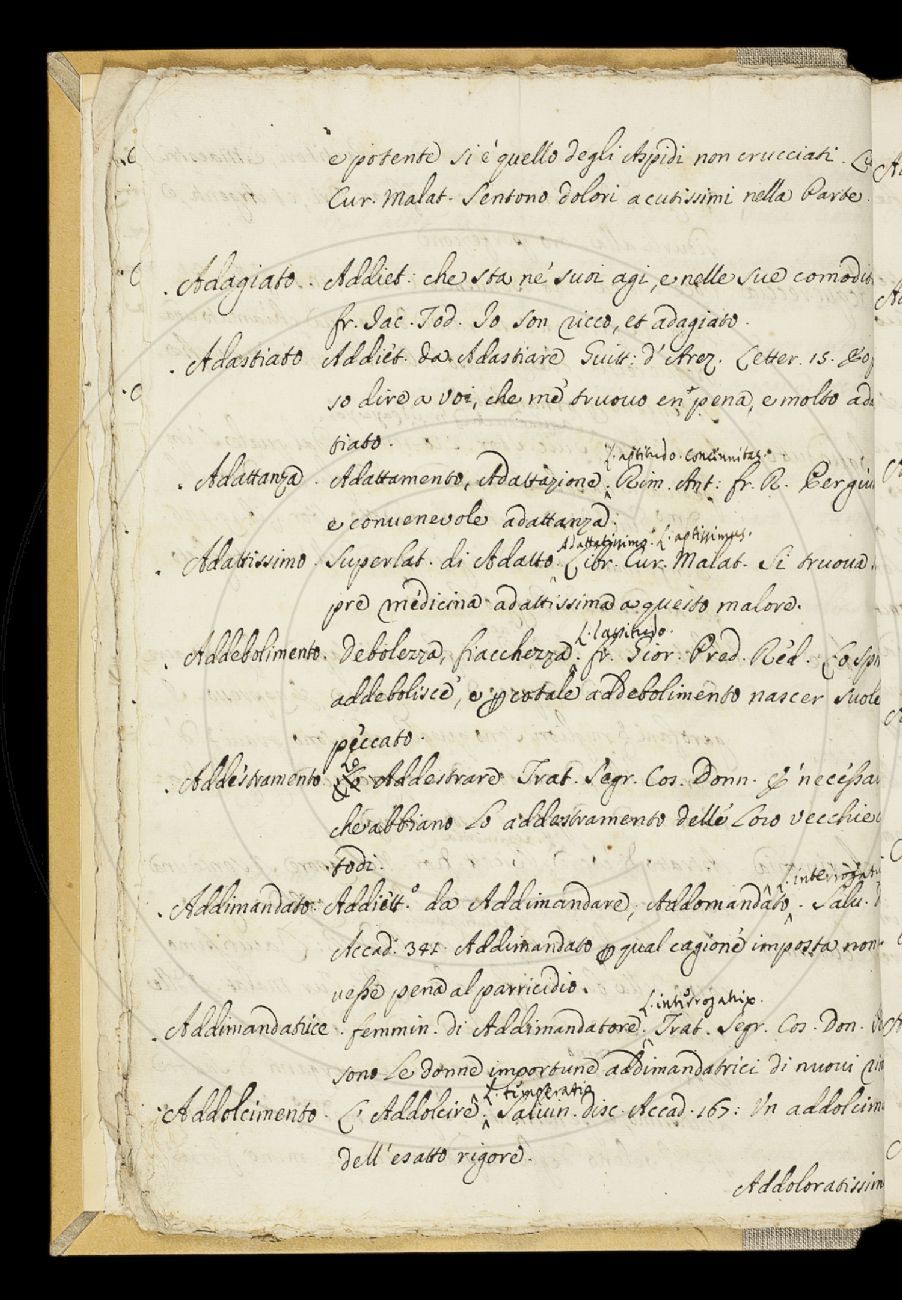 e potente si è quello degli Aspidi non crucciati.
Cur. Malat. Sentono dolori acutissimi nella Parte
. Adagiato. Addiet: che sta ne' suoi agi, e nelle sue comodit
fr. Jac. Tod. Io son ricco, et adagiato.
. Adastiato Addiet. da Adastiare Guitt: d'Arez. Letter. 15.
so dire a voi, che me truovo en pena, e molto ada
tiato.
L. aptitudo. concinnitas.
. Adattanza. Adattamento, Adattazione. Rim. Ant: fr. R. Per giu
e convenevole adattanza.
Adattatissimo. L. aptissimus.
. Adattissimo. Superlat. di Adatto. Libr. Cur. Malat. Si truova
pre medicina adattissima a questo malore.
L. lassitudo.
. Addebolimento. Debolezza, fiacchezza. fr. Gior. Pred. Red. Lo spir
addebolisce, e ꝑ cotale addebolimento nascer suole
peccato.
Lo
. Addestramento. Addestrare Trat. Segr. Cos. Donn. E' necessa
che abbiano Lo addestramento delle Loro vecchie
todi.
L. interrogatu
. Addimandato. Addiett.º da Addimandare, Addomandato. Salv.
Accad. 341. Addimandato ꝑ qual cagione imposta non
vesse pena al parricidio.
L. interrogatrix.
. Addimandatrice. femmin. di Addimandatore. Trat. Segr. Cos. Don.
sono Le donne importune addimandatrici di nuovi
L. temperatio
. Addolcimento. L' Addolcire. Salvin. disc. Accad. 167: Un addolcim
dell'esatto rigore.
Addoloratissim